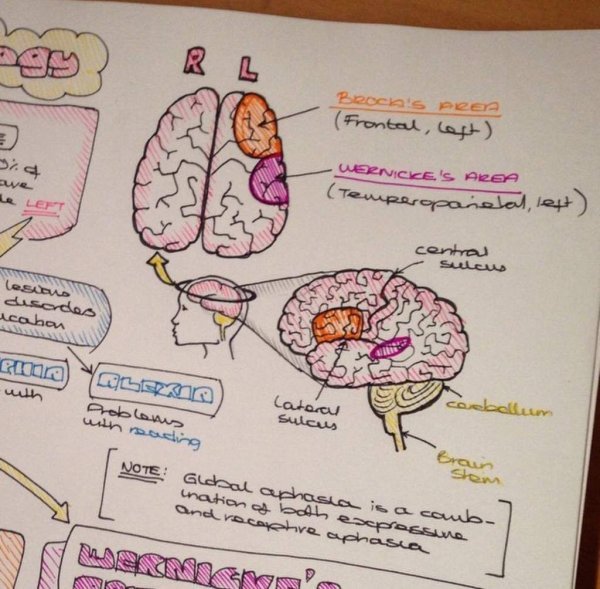 ogy
R L
BROCA'S AREA
(Frontal, left)
WERNICKE'S AREA
(Temperoparietal, left)
% of
LEFT
central
sulcus
lesions
disorder
with
ALEXIA
Problems
with reading
lateral
sulcus
cerebellum
Brain
stem
NOTE: Global aphasia is a comb-
ination of both expressive
and receptive aphasia
WERNICKE'S